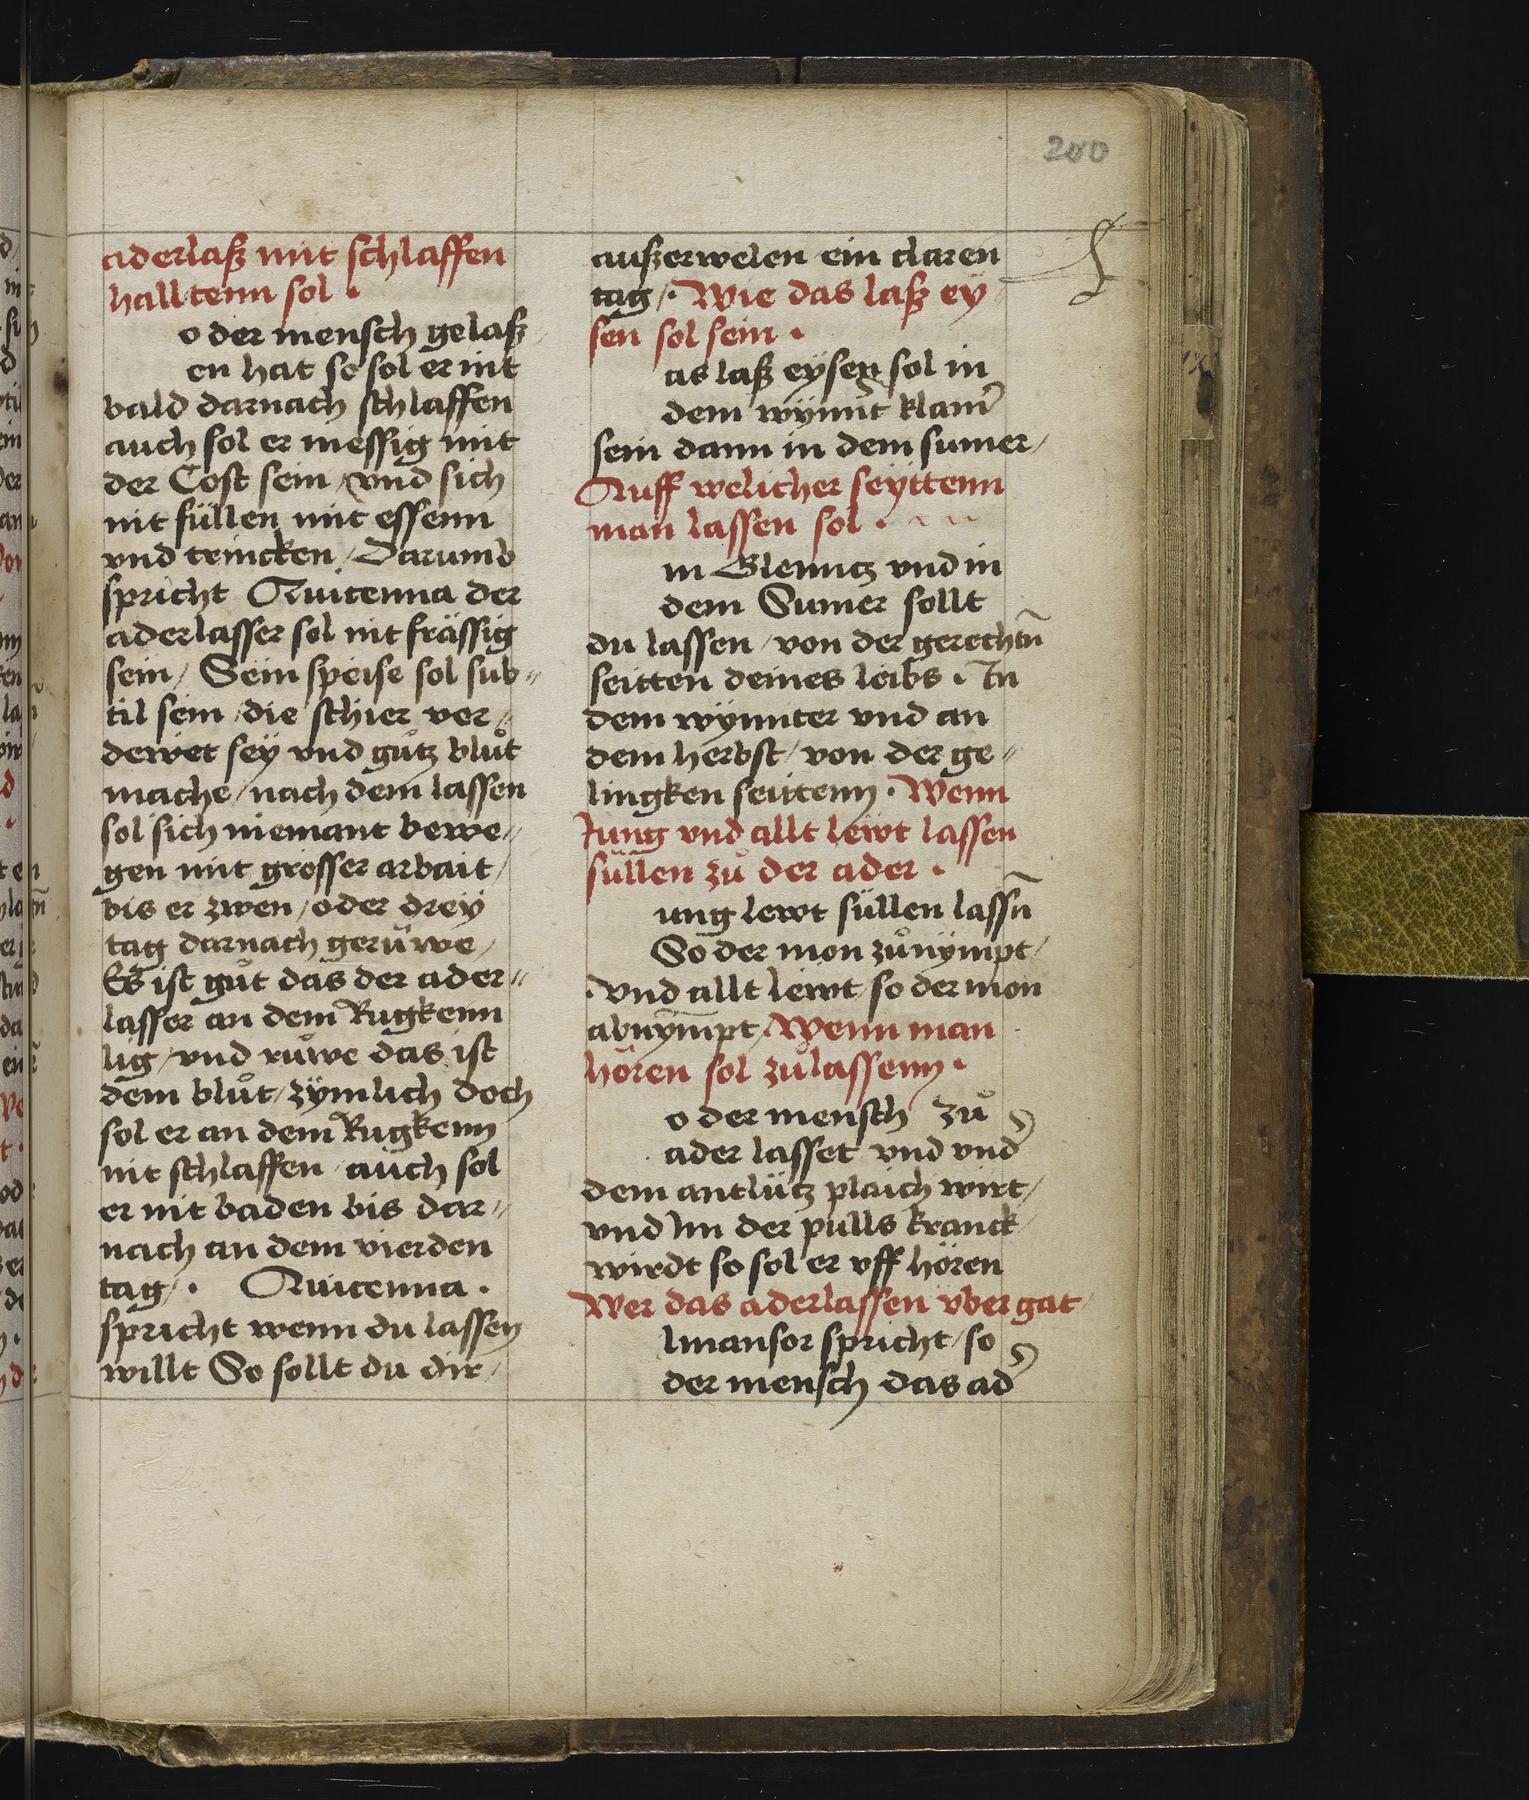 200
aderlaß mit schlaffen
halltenn sol .
o der mensch gelaß
en hat so sol er nit
bald darnach schlaffen
auch sol er messig mit
der Cost sein / vnd sich
nit füllen mit essenn
vnd trincken / Darumb
spricht Auicenna der
aderlasser sol nit frässig
sein / Sein speise sol sub〃
til sein die schier ver〃
dewet sey vnd gůtz blůt
mache / nach dem lassen
sol sich niemant bewe〃
gen mit grosser arbait /
bis er zwen / oder drey
tag darnach gerůwe /
Es ist gůt das der ader〃
lasser an dem Rugkenn
lig / vnd růwe das ist
dem blůt / zÿmlich doch
sol er an dem Rugkenn
nit schlaffen / auch sol
er nit baden bis dar〃
nach an dem vierden
tag / . Auicenna .
spricht wenn du lassen
willt So sollt du dir /
außerwelen ein claren
tag / . Wie das laß ey
sen sol sein .
as laß eÿsen sol in
dem wÿnnt̾ klain̾
sein dann in dem sumer /
Auff welicher seyttenn
man lassen sol .
in Glenntz vnd in
dem Sumer sollt
du lassen / von der gerechtn̄
seitten deines leibs . In
dem wÿnnter vnd an
dem herbst / von der ge〃
lingken seittenn . Wenn
Jung vnd allt lewt lassen
süllen zů der ader .
ung lewt süllen lassn̄
So der mon zůnÿmpt /
vnd allt lewt / so der mon
abnÿmpt / Wenn man
hören sol zůlassenn .
o der mensch zů
ader lasset vnd vnd̾
dem antlütz plaich wirt /
vnd Im der pulls kranck /
wirdt so sol er vff hören
Wer das aderlassen vbergat /
lmansor spricht / so
der mensch das ad̾